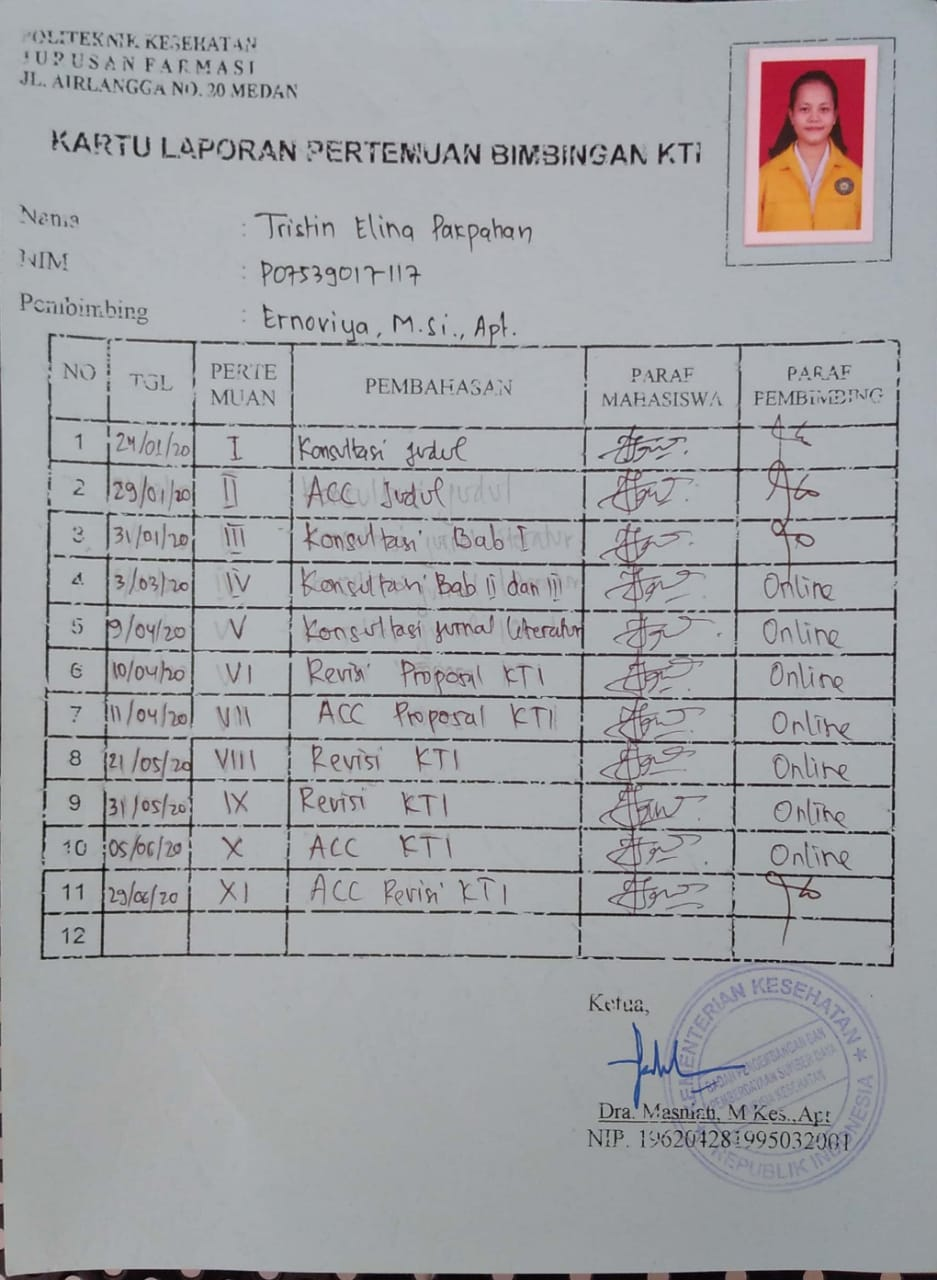 POLITEKNIK KESEHATAN
JURUSAN FARMASI
JL. AIRLANGGA NO. 20 MEDAN
KARTU LAPORAN PERTEMUAN BIMBINGAN KTI
Nama : Tristin Elina Pakpahan
NIM : P07539017117
Pembimbing : Ernoviya, M.Si., Apt.
NO TGL PERTE MUAN PEMBAHASAN PARAF MAHASISWA PARAF PEMBIMBING
1 24/01/20 I Konsultasi Judul
2 29/01/20 II ACC Judul
3 31/01/20 III Konsultasi Bab I
4 3/03/20 IV Konsultasi Bab II dan III Online
5 9/04/20 V Konsultasi jurnal literatur Online
6 10/04/20 VI Revisi Proposal KTI Online
7 11/04/20 VII ACC Proposal KTI Online
8 21/05/20 VIII Revisi KTI Online
9 31/05/20 IX Revisi KTI Online
10 05/06/20 X ACC KTI Online
11 29/06/20 XI ACC Revisi KTI
12
Ketua,
Dra. Masniah, M Kes.,Apt
NIP. 196204281995032001
KEMENTERIAN KESEHATAN
BADAN PENGEMBANGAN DAN
PEMBERDAYAAN SUMBER DAYA
MANUSIA KESEHATAN
REPUBLIK INDONESIA